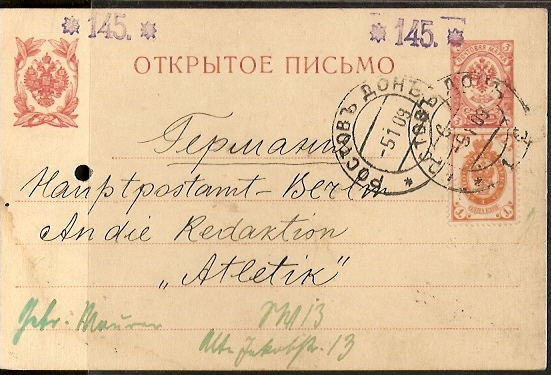 * 145. * * 145. *
ОТКРЫТОЕ ПИСЬМО
РОСТОВЪ ДОНЪ
-5 1 09
Германия
Hauptpostamt-Berlin
An die Redaktion
„Atletik“
Gebr: Maurer SW 13
Alte Jakobstr. 13